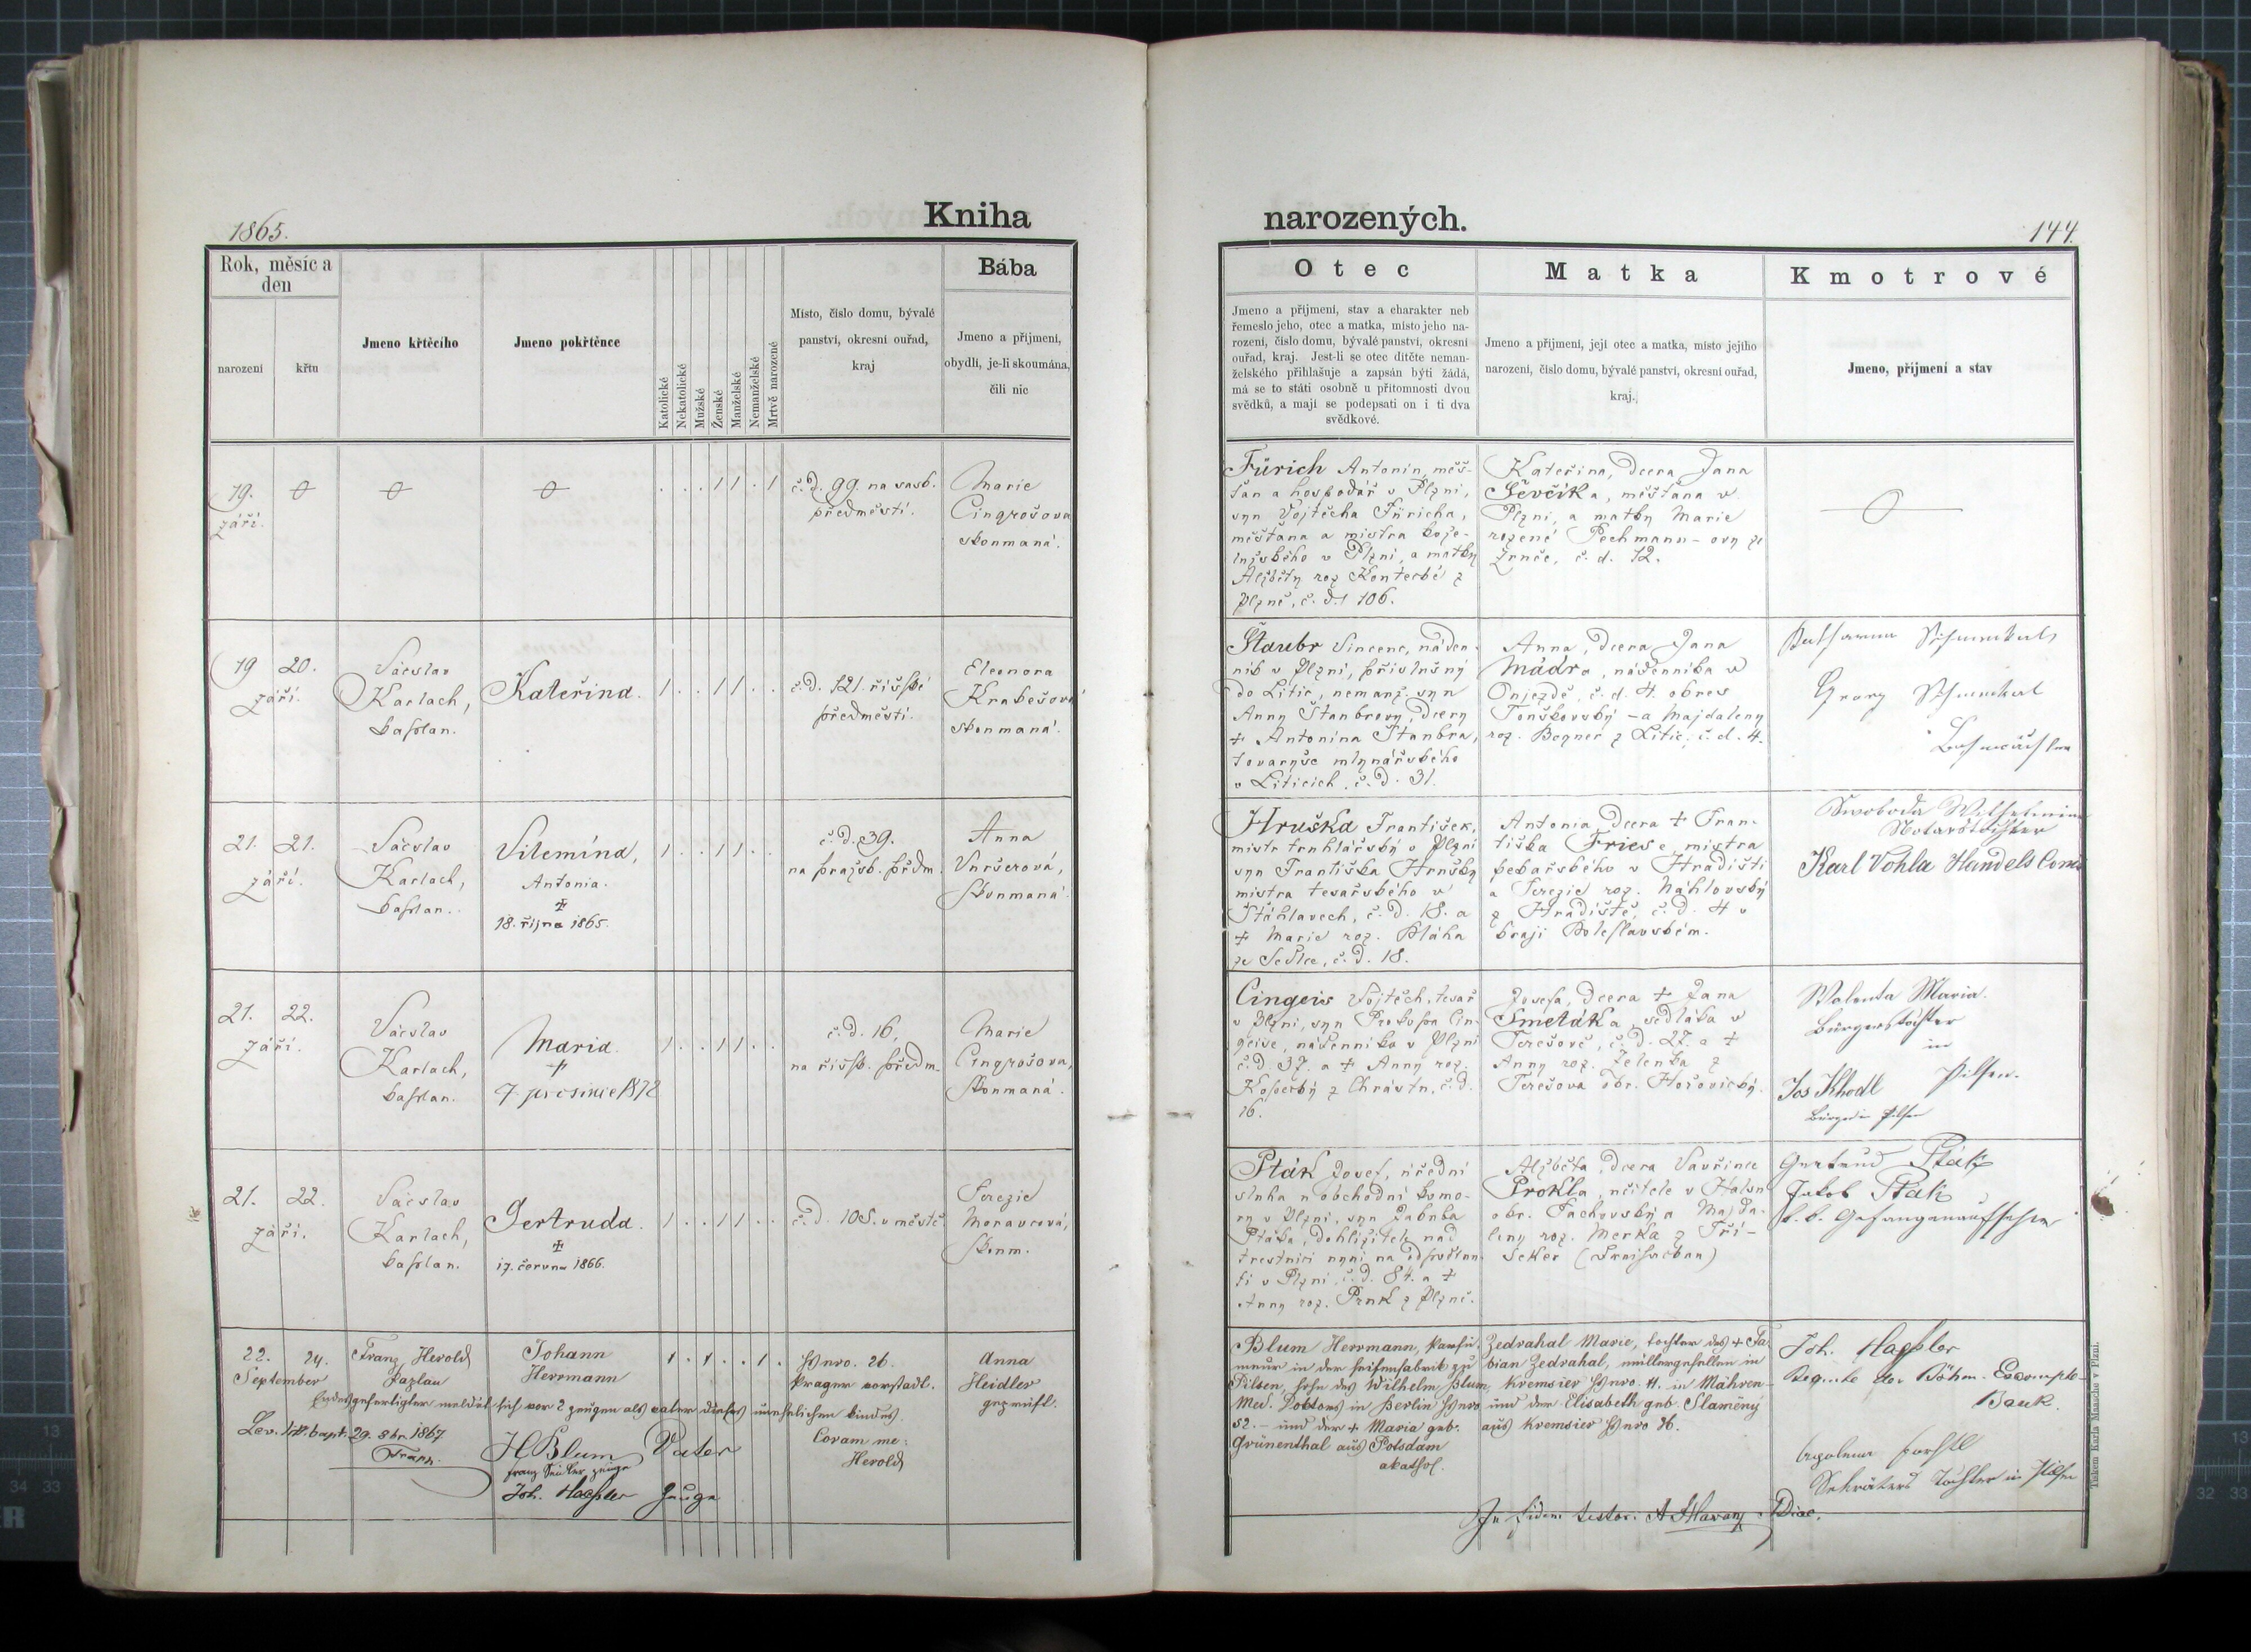 1865.
Kniha
narozených.
144.
Rok, měsíc a
den
narození
křtu
Jmeno křtěcího
Jmeno pokřtěnce
Katolické
Nekatolické
Mužské
Ženské
Manželské
Nemanželské
Mrtvě narozené
Místo, číslo domu, bývalé
panství, okresní ouřad,
kraj
Bába
Jmeno a příjmení,
obydlí, je-li skoumána,
čili nic
Otec
Jmeno a příjmení, stav a charakter neb
řemeslo jeho, otec a matka, místo jeho na-
rození, číslo domu, bývalé panství, okresní
ouřad, kraj. Jest-li se otec dítěte neman-
želského přihlašuje a zapsán býti žádá,
má se to státi osobně u přítomnosti dvou
svědků, a mají se podepsati on i ti dva
svědkové.
Matka
Jmeno a příjmení, její otec a matka, místo jejího
narození, číslo domu, bývalé panství, okresní ouřad,
kraj.
Kmotrové
Jmeno, příjmení a stav
19.
září.
č. d. 99. na sasb.
předměstí.
Marie
Cingrošova
skoumaná.
Fürich Antonín, měš-
ťan a hospodář v Plzni,
syn Vojtěcha Füricha,
měšťana a mistra kože-
lužského v Plzni, a matky
Alžběty roz
Plzně, č. d. 106.
Kateřina, dcera Jana
Ševčíka, měšťana v
Plzni, a matky Marie
rozené Pechmann-ovy ze
č. d. 12.
19 20.
září.
Václav
Karlach,
kaplan.
Kateřina.
č. d. 121. říšské
předměstí.
Eleonora
Krabešová
skoumaná.
Štaubr Vincenc, náden-
ník v Plzni, příslušný
do Litic, nemanž. syn
Anny Štaubrovy, dcery
+ Antonína Štaubra,
tovaryše mlynářského
v Liticích, č. d. 31.
Anna, dcera Jana
Mádra, nádenníka v
Oujezdě, č. d. 4. okres
Touškovský - a Majdaleny
roz. Begner z Litic, č. d. 4.
Georg
21. 21.
září.
Václav
Karlach,
kaplan.
Vilemína,
Antonia.
+
18. října 1865.
č. d. 39.
na prajsk. předm.
Anna
skoumaná.
Hruška František,
mistr truhlářský v Plzni
syn Františka Hrušky
mistra tesařského v
Šťáhlavech, č. d. 18. a
+ Marie roz. Bláha
ze Sedlce, č. d. 18.
Antonia dcera + Fran-
tiška Friese, mistra
pekařského v Hradišti
a Terezie roz. Náhlovský
z Hradiště, č. d. 4 v
kraji Boleslavském.
Swoboda Wilhelmine
Notarstochter
Karl Vohla Handels Comis
21. 22.
září.
Václav
Karlach,
kaplan.
Maria.
+
7. prosince 1872
č. d. 16,
na říšsk. předm.
Marie
Cingrošova,
skoumaná.
Cingeis Vojtěch, tesař
v Plzni, syn Prokopa Cin-
geise, nádenníka v Plzni
č. d. 37. a + Anny roz.
z Chrástu, č. d.
16.
Josefa, dcera + Jana
Smetáka sedláka v
Terešově, č. d. 27. a +
Anny roz. Zelenka z
Terešova okr. Hořovický.
Walenta Maria.
Bürgerstochter
in
Pilsen.
Jos Khodl
Bürger in Pilsen
21. 22.
září.
Václav
Karlach,
kaplan.
Gertruda.
+
17. června 1866.
č. d. 105. v městě.
Terezie
Moravcová,
skoum.
Pták Josef, úřední
sluha u obchodní komo-
ry v Plzni, syn Jakuba
Ptáka, dohližitele nad
trestnicí nyní na odpočinu-
tí v Plzni, č. d. 84. a +
Anny roz. Prnk z Plzně.
Alžběta, dcera Vavřince
Prokla, učitele v
okr. Tachovský a Majda-
leny roz. Merka z Tří-
Seker
Gertrud Ptak
Jakob Ptak
k. k. Gefangenaufseher
22. 24.
September
Franz Herold
Kaplan
Johann
Herrmann
Hsnro. 26.
Prager vorstadt.
Anna
Heidler
geprüft.
Endesgefertigter meldet sich vor 2 zeugen als vater dieses unehelichen kindes.
Lev. litt. bapt. 29. 8br. 1867
H Blum Vater
Coram me:
Herold
Joh. Haessler Zeuge
Blum Herrmann, Parfü-
meur in der seifenfabrik zu
Pilsen, sohn des Wilhelm Blum,
Med. Doktors in Berlin Hsnro
52. – und der + Maria geb.
Grünenthal aus Potsdam
akathol.
Zedrahal Marie, tochter des + Fa-
bian Zedrahal, müllergesellen in
Kremsier Hsnro. 11. in Mähren
und der Elisabeth geb. Slamény
aus Kremsier Hsnro 26.
Joh. Haessler
Beamte der Böhm. Escompte-
Bank.
Sekretärs Tochter in Pilsen
In fidem testor:
Tiskem Karla Maasche v Plzni.